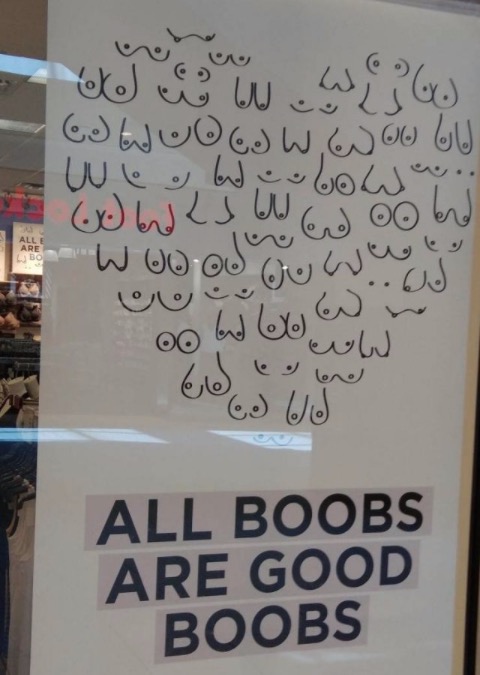 ALL BOOBS
ARE GOOD
BOOBS